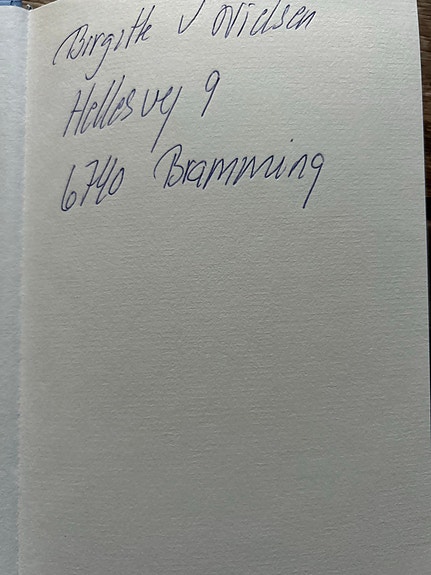 Birgitte V Nielsen
Hellesvej 9
6740 Bramming